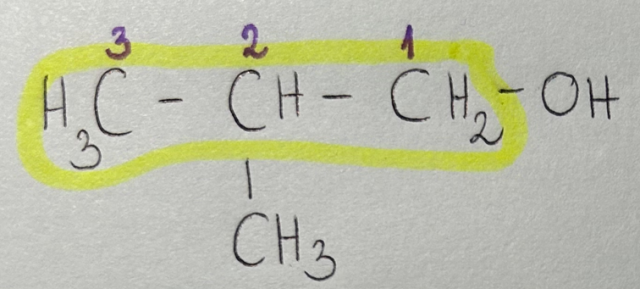 3 2 1
H₃C - CH - CH₂ - OH
|
CH₃